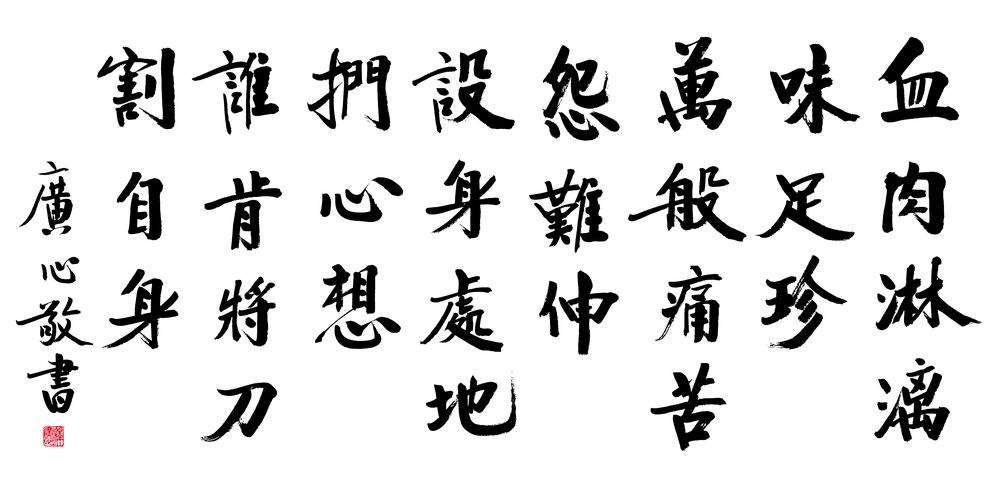 血肉淋漓
味足珍
萬般痛苦
怨難伸
設身處地
捫心想
誰肯將刀
割自身
廣心敬書